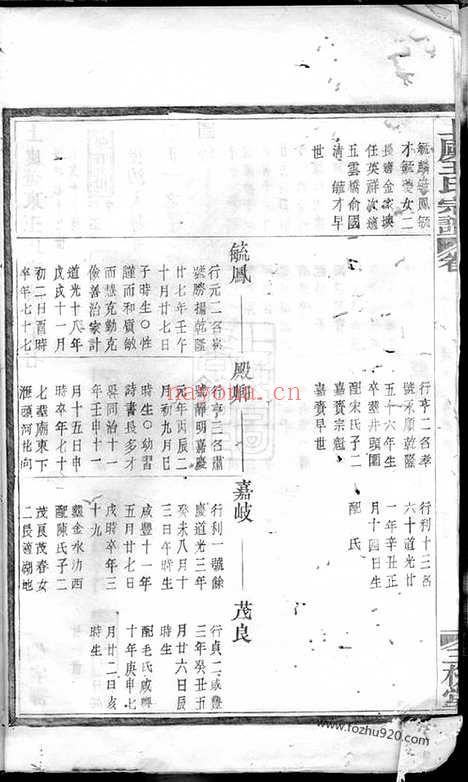 上虞王氏宗譜 卷
三槐堂
毓麟毓鳳毓
才毓裝女二
長適金家墺
任英祥次適
五雲橋俞國
清 毓才早
世
行亨二名孝
號永順乾隆
五十六年生
卒塟井頭圍
配宋氏子二
嘉賓宗魁
嘉賓早世
行利十三名
六十道光廿
一年辛丑正
月十四日生
配 氏
毓鳳
殿卿
嘉岐
茂良
行元二名宗
號勝揚乾隆
廿七年壬午
十月廿七日
子時生○性
謹而和廣敏
而慧克勤克
儉善治家計
道光十八年
戊戌十一月
初二日酉時
卒年七十七
行亨三名肅
號靜明嘉慶
元年丙辰二
月初九日巳
時生○幼習
詩書長多才
畧同治十一
年壬申十一
月十五日申
時卒年七十
七塟廟東下
滙頭河花向
行利一號餘
慶道光三年
癸未八月十
三日午時生
咸豐十一年
五月廿七日
戌時卒年三
十九
塟金水 西
配陳氏子二
茂良茂春女
二長適湖地
行貞二咸豐
三年癸丑五
月廿六日辰
時生
配毛氏咸豐
十年庚申七
月廿二日亥
時生
nayona.cn
www.fozhu920.com